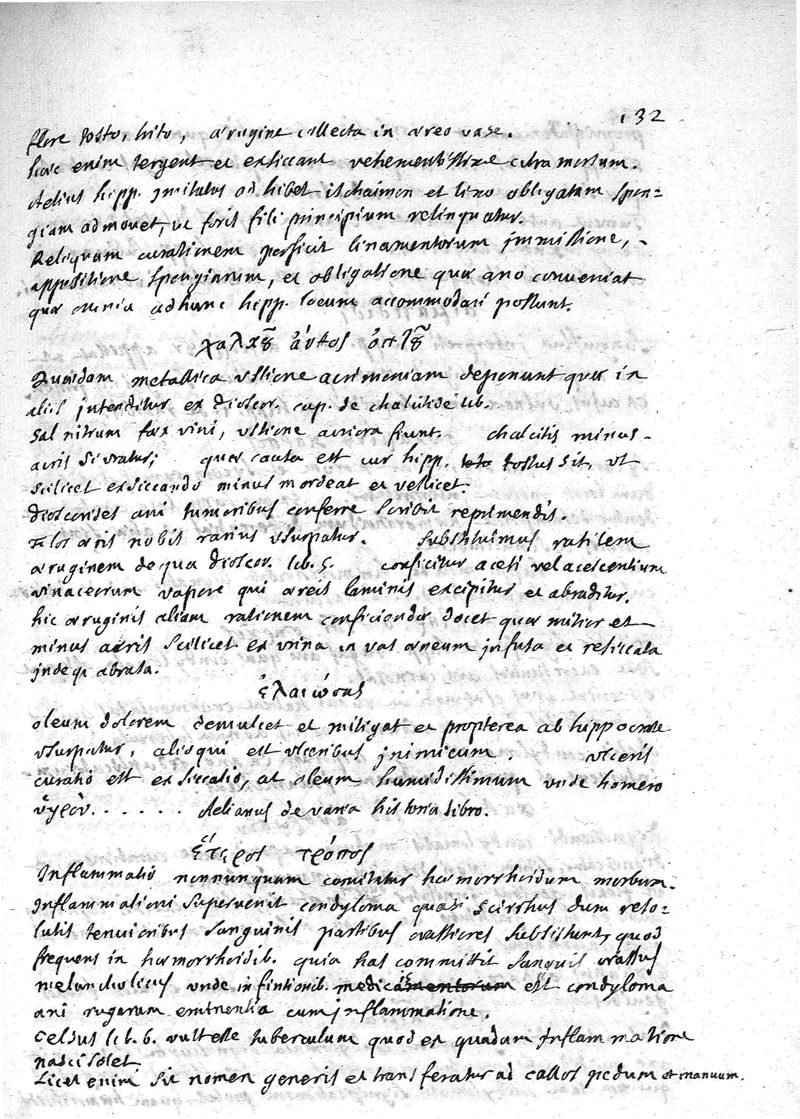 132
flore tosto, trito, ærugine collecta in æreo vase.
hæc enim tergent et exsiccant vehementissime citra morsum.
Aetius hipp. imitatus adhibet ischaimon et lino obligatam spon=
giam admovet, ut foris fili principium relinquatur.
Reliquam curationem perficit linamentorum immissione,
appositione spongiarum, et obligatione quæ ano conveniat
quæ omnia ad hunc hipp. locum accommodari possunt.
χαλκȣ̃ ἄνθος ὀπτȣ̃
Quædam metallica ustione acrimoniam deponunt quæ in
aliis intenditur ex dioscor. cap. de chalcitide lib.
Sal nitrum fæx vini, ustione acriora fiunt. chalcitis minus
acris si uratur; quæ causa est cur hipp. tostus sit, ut
scilicet exsiccando minus mordeat et vellicet.
dioscorides ani tumoribus conferre scribit reprimendis.
Flos æris nobis rarius usurpatur. substituimus rasilem
æruginem de qua dioscor. lib. 5. conficitur aceti vel acescentium
vinaceorum vapore qui æreis laminis excipitur et abraditur.
hic æruginis aliam rationem conficiendæ docet quæ mitior et
minus acris scilicet ex urina in vas æneum infusa et resiccata
inde q; abrasa.
ἐλαιώσας
oleum dolorem demulcet et mitigat et propterea ab hippocrate
usurpatur, alioqui est ulceribus inimicum. ulceris
curatio est exsiccatio, at oleum humidissimum unde homero
ὑγρὸν. . . . . . Aelianus de varia historia libro.
ἕτερος τρόπος
Inflammatio nonnunquam comitatur hæmorrhoidum morbum.
Inflammationi supervenit condyloma quasi scirrhus dum reso=
lutis tenuioribus sanguinis partibus crassiores subsistunt, quod
frequens in hæmorrhoidib. quia has committit sanguis crassus
melancholicus unde in finitionib. medicis est condyloma
ani rugarum eminentia cum inflammatione.
Celsus lib. 6. vult esse tuberculum quod ex quadam inflammatione
nasci solet.
Licet enim sit nomen generis et transferatur ad callos pedum et manuum.